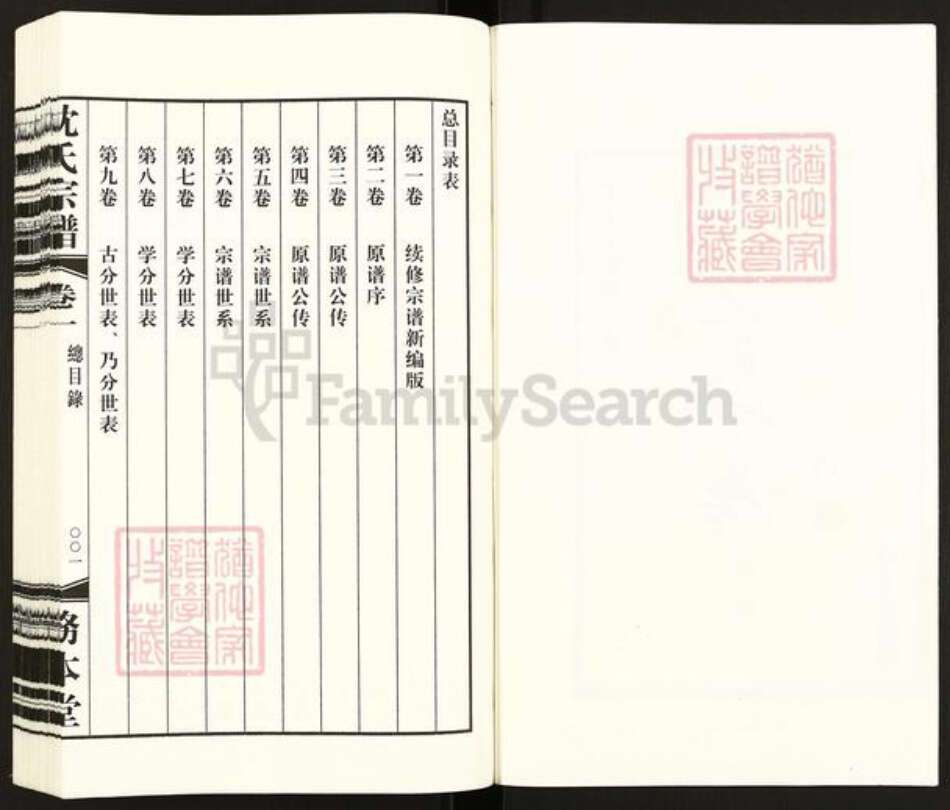 总目录表
第一卷 续修宗谱新编版
第二卷 原谱序
第三卷 原谱公传
第四卷 原谱公传
第五卷 宗谱世系
第六卷 宗谱世系
第七卷 学分世表
第八卷 学分世表
第九卷 古分世表、乃分世表
沈氏宗譜
卷一
總目錄
〇〇一
務本堂
猶他家
譜學會
收藏
猶他家
譜學會
收藏
FamilySearch